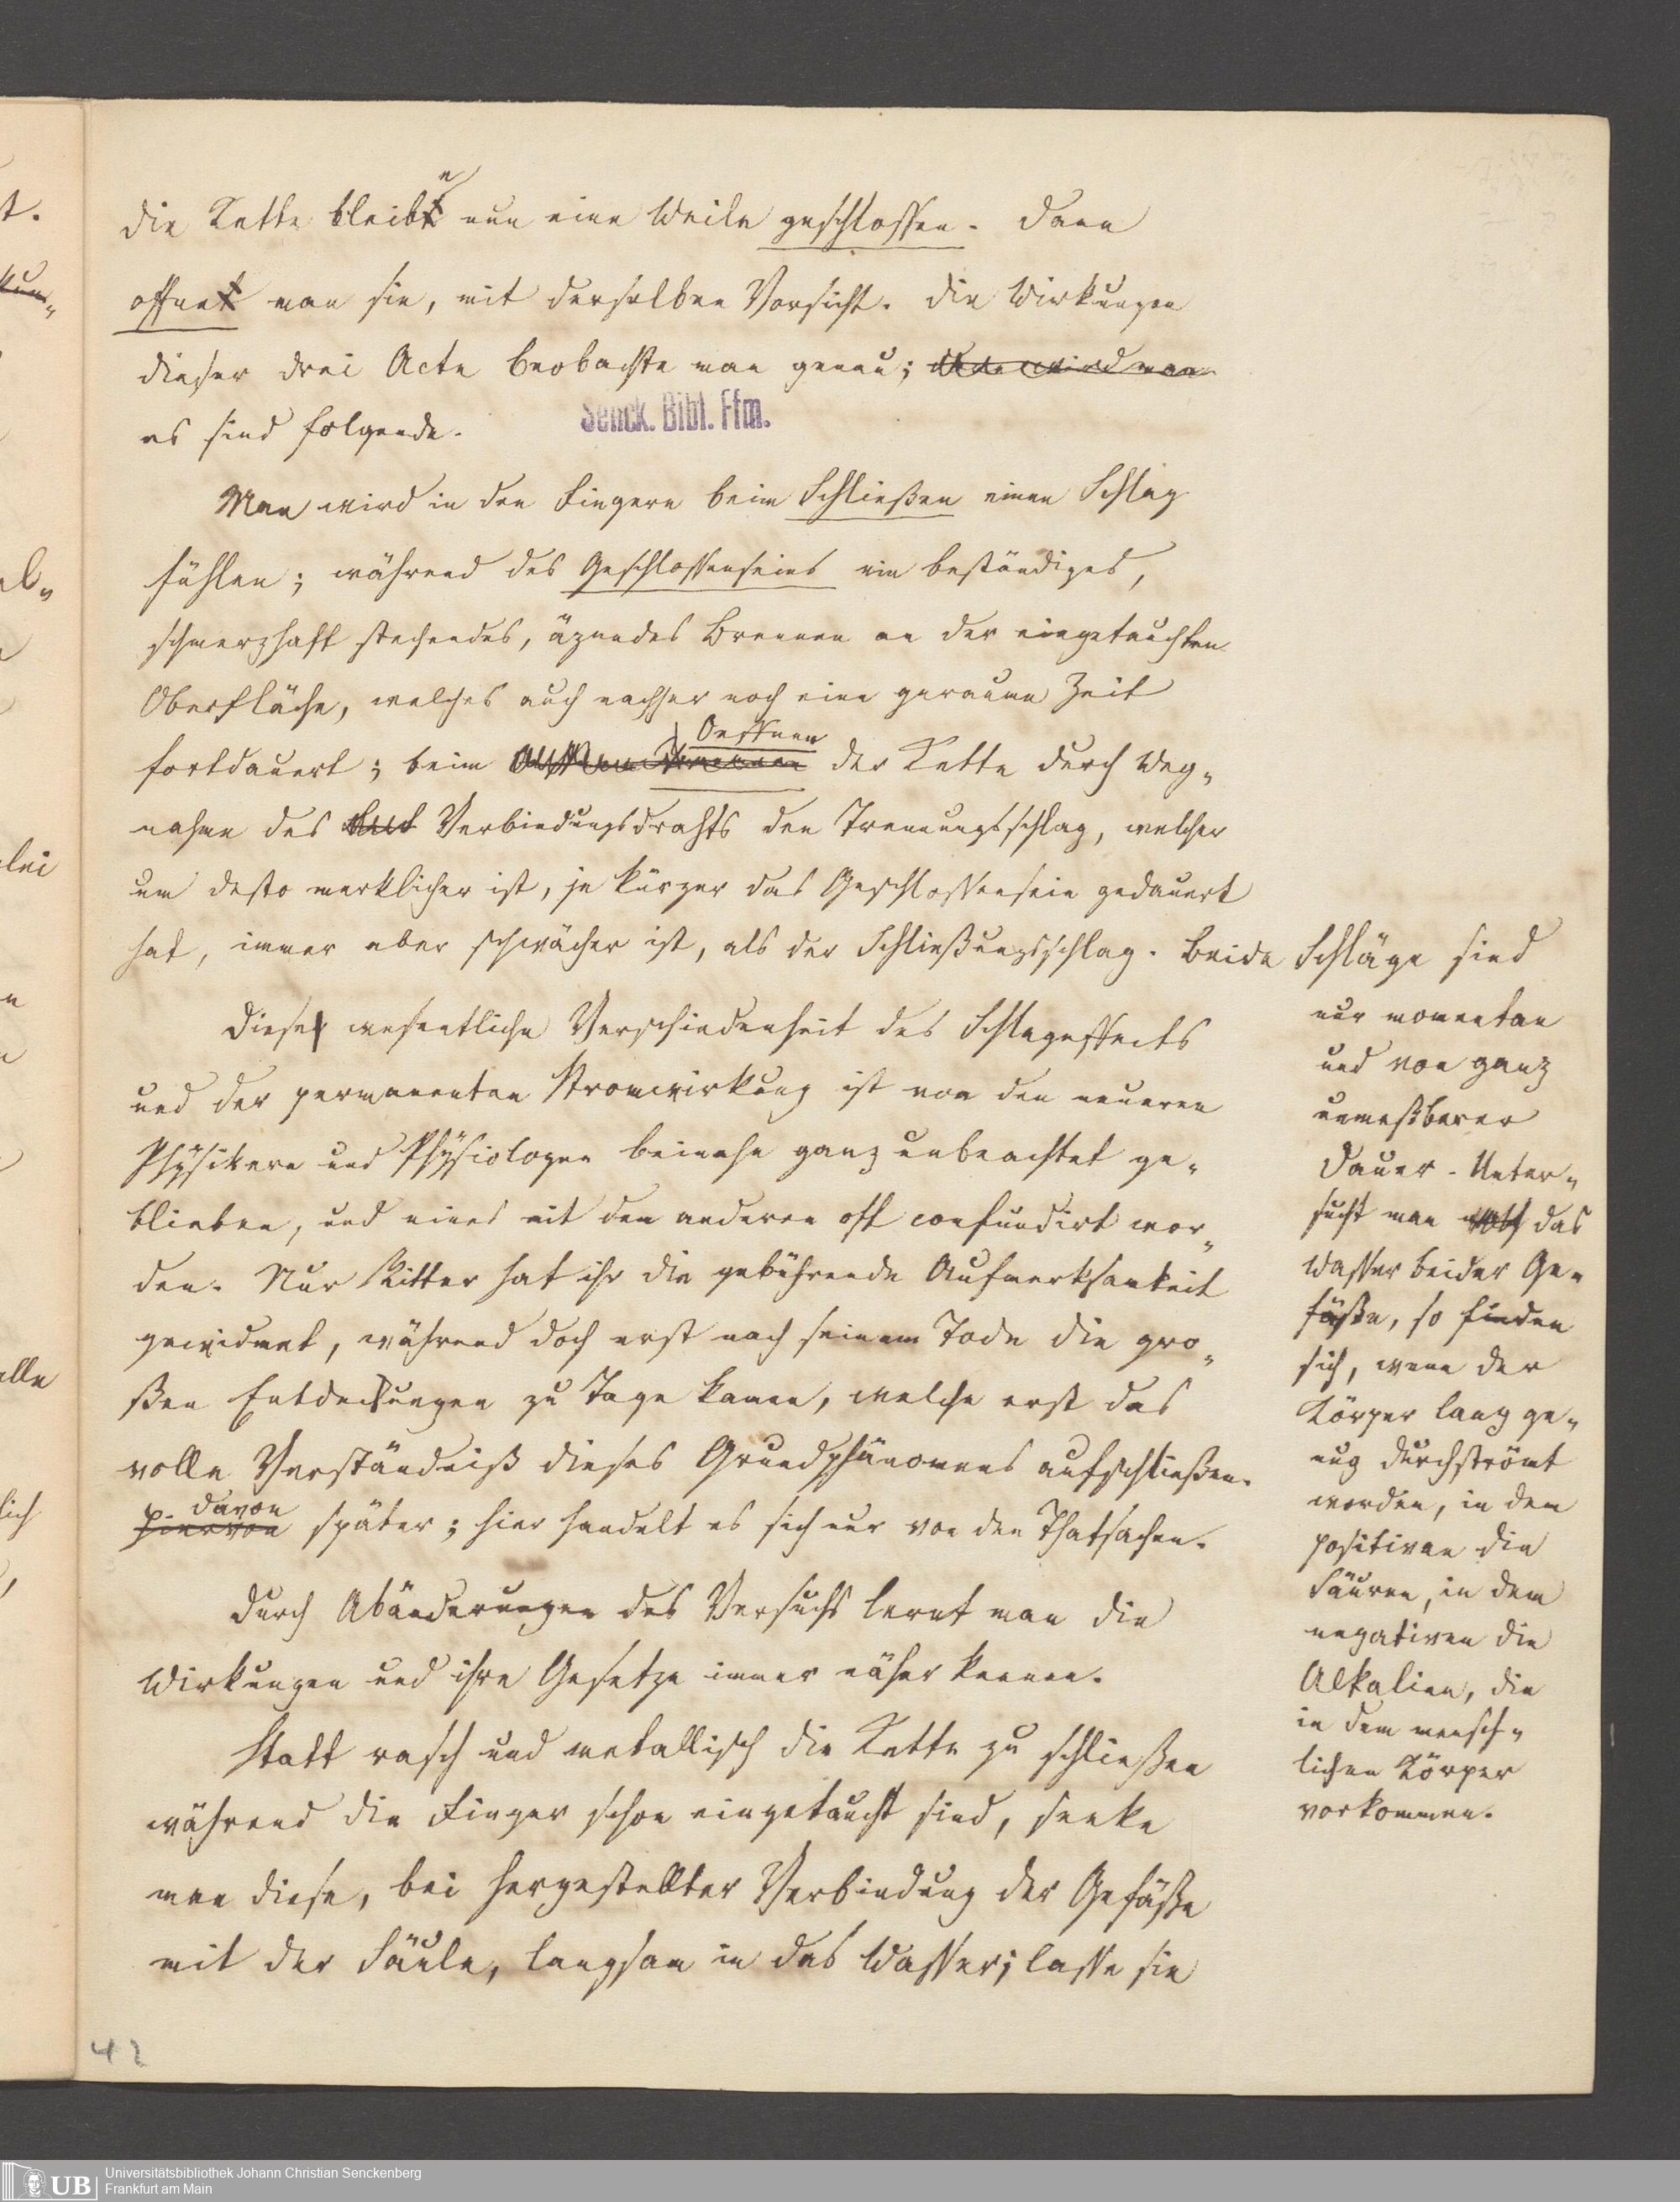 die Kette bleibe nun eine Weile geschlossen. Dann
öffne man sie, mit derselben Vorsicht. Die Wirkungen
dieser drei Acte beobachte man genau;
es sind folgende.
Senck. Bibl. Ffm.
Man wird in den Fingern beim Schließen einen Schlag
fühlen; während des Geschlossenseins ein beständiges,
schmerzhaft stechendes, äzendes Brennen an der eingetauchten
Oberfläche, welches auch nachher noch eine geraume Zeit
fortdauert; beim Oeffnen der Kette durch Weg-
nahme des Verbindungsdrahts den Trennungsschlag, welcher
um desto merklicher ist, je kürzer das Geschlossensein gedauert
hat, immer aber schwächer ist, als der Schließungsschlag. Beide Schläge sind
nur momentan
und von ganz
unmeßbarer
Dauer. Unter-
sucht man das
Wasser beider Ge-
fäße, so finden
sich, wenn der
Körper lang ge-
nug durchströmt
worden, in dem
positiven die
Säuren, in dem
negativen die
Alkalien, die
in dem mensch-
lichen Körper
vorkommen.
Diese wesentliche Verschiedenheit des Schlageffects
und der permanenten Stromwirkung ist von den neueren
Physikern und Physiologen beinahe ganz unbeachtet ge-
blieben, und eines mit dem anderen oft confundirt wor-
den. Nur Ritter hat ihr die gebührende Aufmerksamkeit
gewidmet, während doch erst nach seinem Tode die gro-
ßen Entdeckungen zu Tage kamen, welche erst das
volle Verständniß dieses Grundphänomens aufschließen.
hiervon davon später; hier handelt es sich nur von den Thatsachen.
Durch Abänderungen des Versuchs lernt man die
Wirkungen und ihre Gesetze immer näher kennen.
Statt rasch und metallisch die Kette zu schließen
während die Finger schon eingetaucht sind, senke
man diese, bei hergestellter Verbindung der Gefäße
mit der Säule, langsam in das Wasser; lasse sie
42
UB
Universitätsbibliothek Johann Christian Senckenberg
Frankfurt am Main